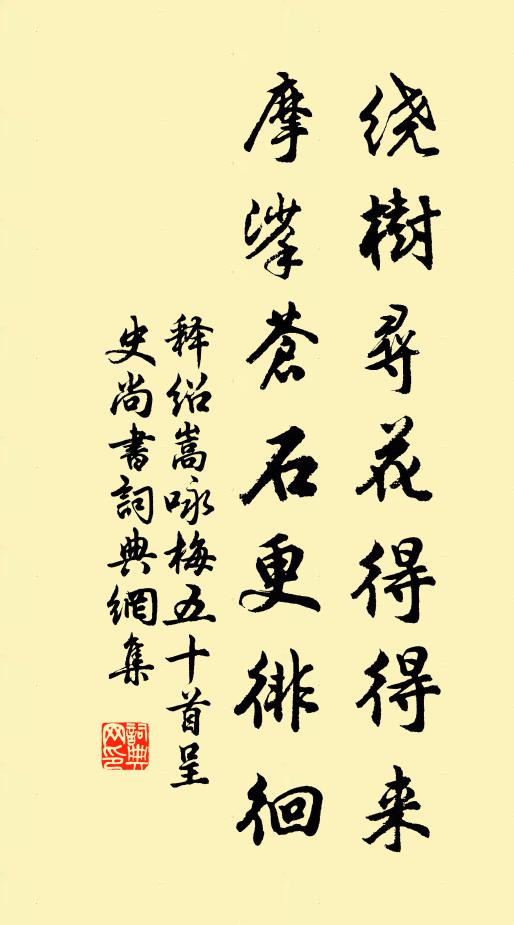 绕樹尋花得得来
摩挲蒼石更徘徊
释绍嵩咏梅五十首呈
史尚書詞典網集
詞典
网印